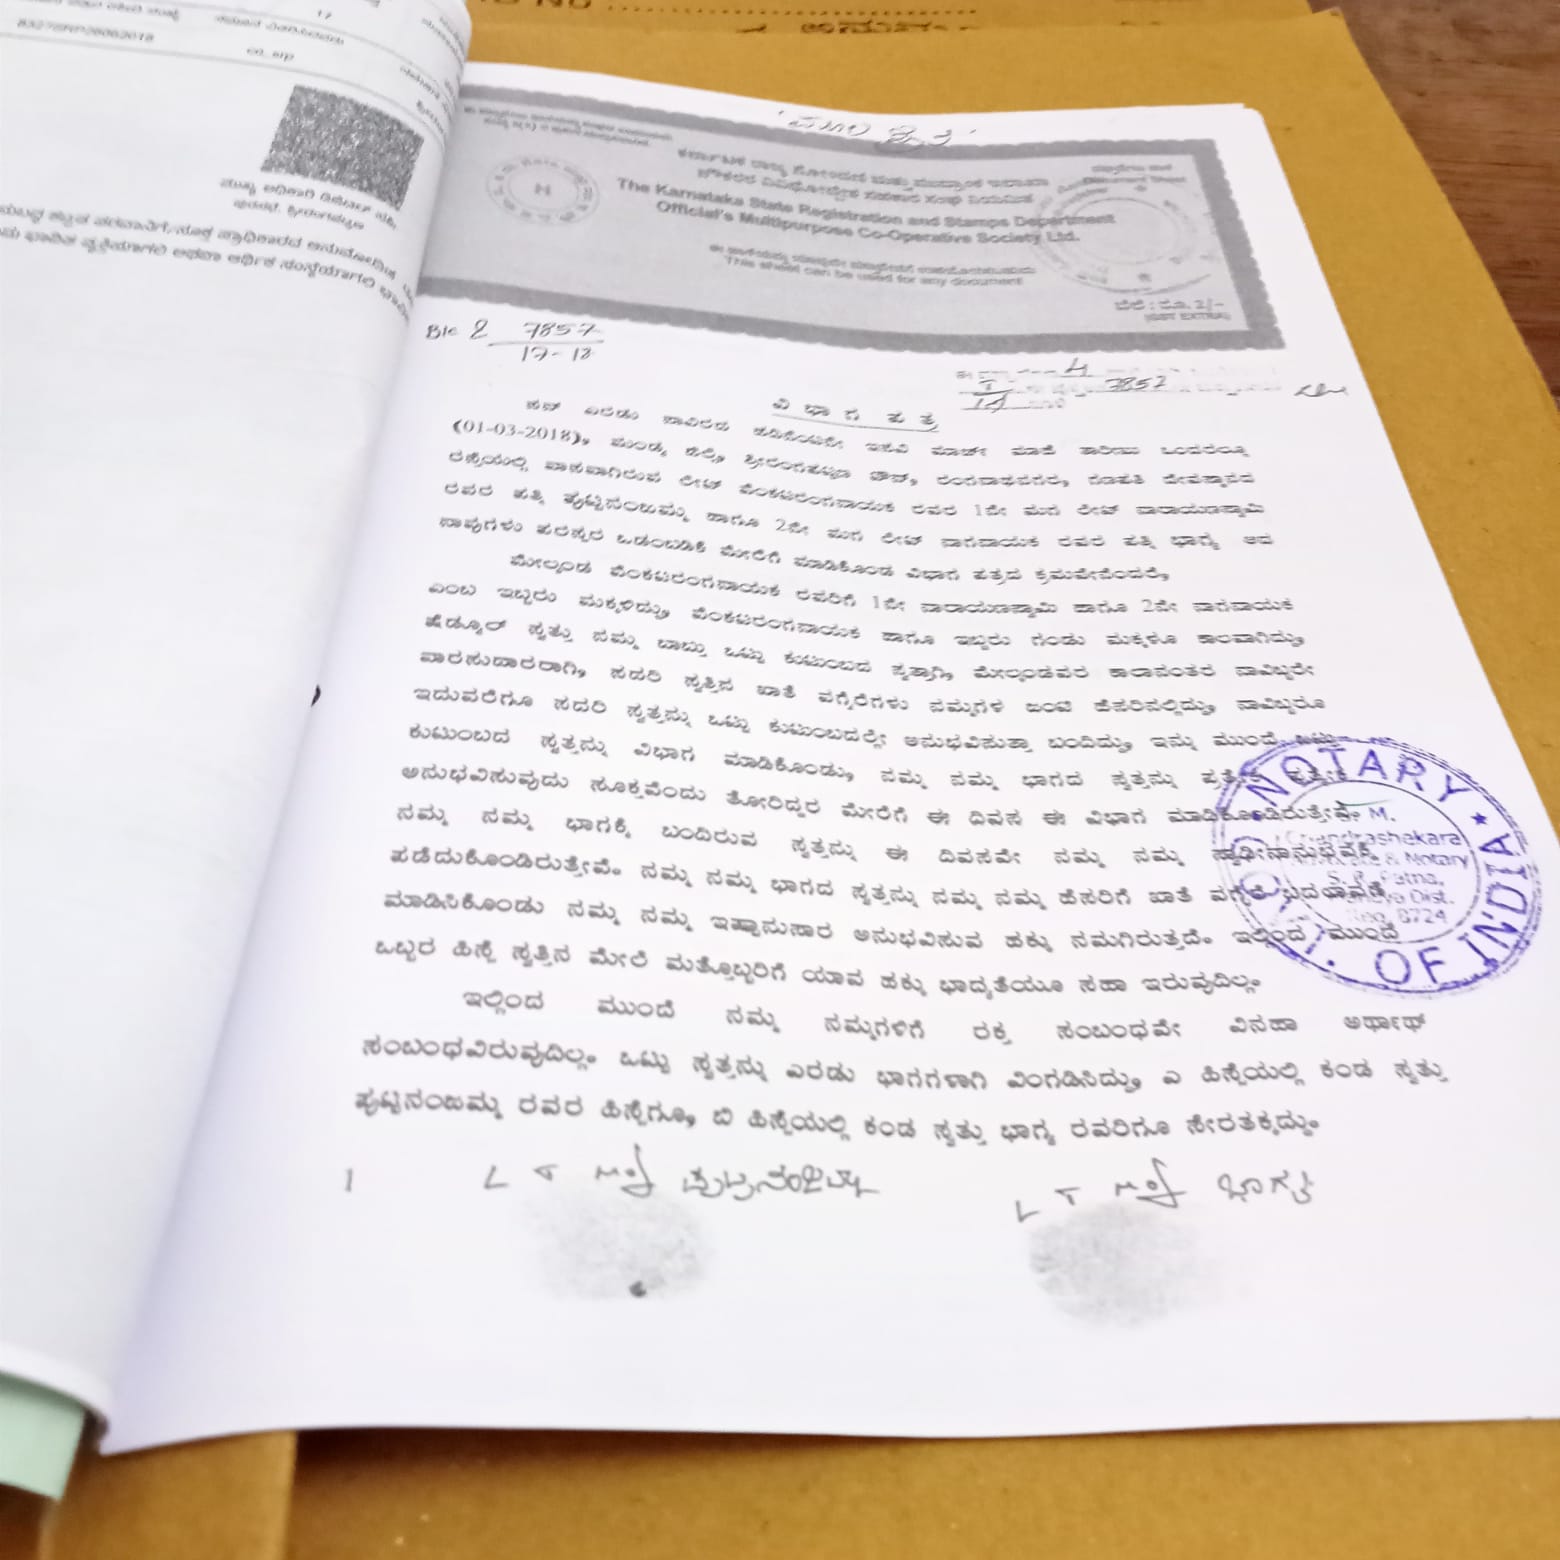 83278RP28062018
ಮುಖ್ಯ ಅಧಿಕಾರಿ
ಪುರಸಭೆ, ಶ್ರೀರಂಗಪಟ್ಟಣ
ಕರ್ನಾಟಕ ರಾಜ್ಯ ನೋಂದಣಿ ಮತ್ತು ಮುದ್ರಾಂಕ ಇಲಾಖಾ
ನೌಕರರ ವಿವಿಧೋದ್ದೇಶ ಸಹಕಾರ ಸಂಘ ನಿಯಮಿತ
The Karnataka State Registration and Stamps Department
Official's Multipurpose Co-Operative Society Ltd.
This sheet can be used for any document
ಬೆಲೆ : ರೂ. 2/-
(GST EXTRA)
7857
17-18
4
7857
14
ವಿ ಭಾ ಗ ಪ ತ್ರ
ಸನ್ ಎರಡು ಸಾವಿರದ ಹದಿನೆಂಟನೇ ಇಸವಿ ಮಾರ್ಚ್ ಮಾಹೆ ತಾರೀಖು ಒಂದರಲ್ಲೂ
(01-03-2018), ಮಂಡ್ಯ ಜಿಲ್ಲೆ, ಶ್ರೀರಂಗಪಟ್ಟಣ ಟೌನ್, ರಂಗನಾಥನಗರ, ಗಣಪತಿ ದೇವಸ್ಥಾನದ
ರಸ್ತೆಯಲ್ಲಿ ವಾಸವಾಗಿರುವ ಲೇಟ್ ವೆಂಕಟರಂಗನಾಯಕ ರವರ 1ನೇ ಮಗ ಲೇಟ್ ನಾರಾಯಣಸ್ವಾಮಿ
ರವರ ಪತ್ನಿ ಪುಟ್ಟನಂಜಮ್ಮ ಹಾಗೂ 2ನೇ ಮಗ ಲೇಟ್ ನಾಗನಾಯಕ ರವರ ಪತ್ನಿ ಭಾಗ್ಯ ಆದ
ನಾವುಗಳು ಪರಸ್ಪರ ಒಡಂಬಡಿಕೆ ಮೇರೆಗೆ ಮಾಡಿಕೊಂಡ ವಿಭಾಗ ಪತ್ರದ ಕ್ರಮವೇನೆಂದರೆ,
ಮೇಲ್ಕಂಡ ವೆಂಕಟರಂಗನಾಯಕ ರವರಿಗೆ 1ನೇ ನಾರಾಯಣಸ್ವಾಮಿ ಹಾಗೂ 2ನೇ ನಾಗನಾಯಕ
ಎಂಬ ಇಬ್ಬರು ಮಕ್ಕಳಿದ್ದು, ವೆಂಕಟರಂಗನಾಯಕ ಹಾಗೂ ಇಬ್ಬರು ಗಂಡು ಮಕ್ಕಳೂ ಕಾಲವಾಗಿದ್ದು,
ಷೆಡ್ಯೂಲ್ ಸ್ವತ್ತು ನಮ್ಮ ಬಾಬ್ತು ಒಟ್ಟು ಕುಟುಂಬದ ಸ್ವತ್ತಾಗಿ, ಮೇಲ್ಕಂಡವರ ಕಾಲಾನಂತರ ನಾವಿಬ್ಬರೇ
ವಾರಸುದಾರರಾಗಿ, ಸದರಿ ಸ್ವತ್ತಿನ ಖಾತೆ ವಗೈರೆಗಳು ನಮ್ಮಗಳ ಜಂಟಿ ಹೆಸರಿನಲ್ಲಿದ್ದು, ನಾವಿಬ್ಬರೂ
ಇದುವರೆಗೂ ಸದರಿ ಸ್ವತ್ತನ್ನು ಒಟ್ಟು ಕುಟುಂಬದಲ್ಲೇ ಅನುಭವಿಸುತ್ತಾ ಬಂದಿದ್ದು, ಇನ್ನು ಮುಂದೆ ಒಟ್ಟು
ಕುಟುಂಬದ ಸ್ವತ್ತನ್ನು ವಿಭಾಗ ಮಾಡಿಕೊಂಡು, ನಮ್ಮ ನಮ್ಮ ಭಾಗದ ಸ್ವತ್ತನ್ನು ಪ್ರತ್ಯೇಕ ಪ್ರತ್ಯೇಕ
ಅನುಭವಿಸುವುದು ಸೂಕ್ತವೆಂದು ತೋರಿದ್ದರ ಮೇರೆಗೆ ಈ ದಿವಸ ಈ ವಿಭಾಗ ಮಾಡಿಕೊಂಡಿರುತ್ತೇವೆ.
ನಮ್ಮ ನಮ್ಮ ಭಾಗಕ್ಕೆ ಬಂದಿರುವ ಸ್ವತ್ತನ್ನು ಈ ದಿವಸವೇ ನಮ್ಮ ನಮ್ಮ ಸ್ವಾಧೀನಾನುಭವಕ್ಕೆ
ಪಡೆದುಕೊಂಡಿರುತ್ತೇವೆ. ನಮ್ಮ ನಮ್ಮ ಭಾಗದ ಸ್ವತ್ತನ್ನು ನಮ್ಮ ನಮ್ಮ ಹೆಸರಿಗೆ ಖಾತೆ ವಗೈರೆ ಬದಲಾವಣೆ
ಮಾಡಿಸಿಕೊಂಡು ನಮ್ಮ ನಮ್ಮ ಇಷ್ಟಾನುಸಾರ ಅನುಭವಿಸುವ ಹಕ್ಕು ನಮಗಿರುತ್ತದೆ. ಇಲ್ಲಿಂದ ಮುಂದೆ
ಒಬ್ಬರ ಹಿಸ್ಸೆ ಸ್ವತ್ತಿನ ಮೇಲೆ ಮತ್ತೊಬ್ಬರಿಗೆ ಯಾವ ಹಕ್ಕು ಭಾದ್ಯತೆಯೂ ಸಹಾ ಇರುವುದಿಲ್ಲ.
ಇಲ್ಲಿಂದ ಮುಂದೆ ನಮ್ಮ ನಮ್ಮಗಳಿಗೆ ರಕ್ತ ಸಂಬಂಧವೇ ವಿನಹಾ ಅರ್ಥಾಥ್
ಸಂಬಂಧವಿರುವುದಿಲ್ಲ. ಒಟ್ಟು ಸ್ವತ್ತನ್ನು ಎರಡು ಭಾಗಗಳಾಗಿ ವಿಂಗಡಿಸಿದ್ದು, ಎ ಹಿಸ್ಸೆಯಲ್ಲಿ ಕಂಡ ಸ್ವತ್ತು
ಪುಟ್ಟನಂಜಮ್ಮ ರವರ ಹಿಸ್ಸೆಗೂ, ಬಿ ಹಿಸ್ಸೆಯಲ್ಲಿ ಕಂಡ ಸ್ವತ್ತು ಭಾಗ್ಯ ರವರಿಗೂ ಸೇರತಕ್ಕದ್ದು.
NOTARY
M.
Chandrashekara
& Notary
S. R. Patna,
Dist.
Reg. 8724
OF INDIA
1 L T M of ಪುಟ್ಟನಂಜಮ್ಮ
L T M of ಭಾಗ್ಯ